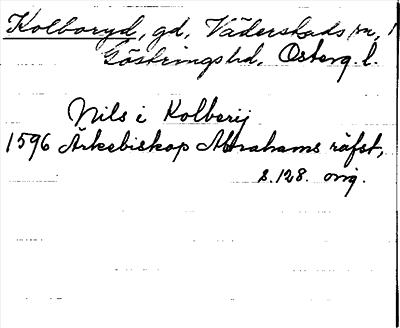 Kolboryd, gd, Väderstads sn,
Göstrings hd, Österg. l.
Nils i Kolberij
1596 Ärkebiskop Abrahams räfst,
s. 128. orig.